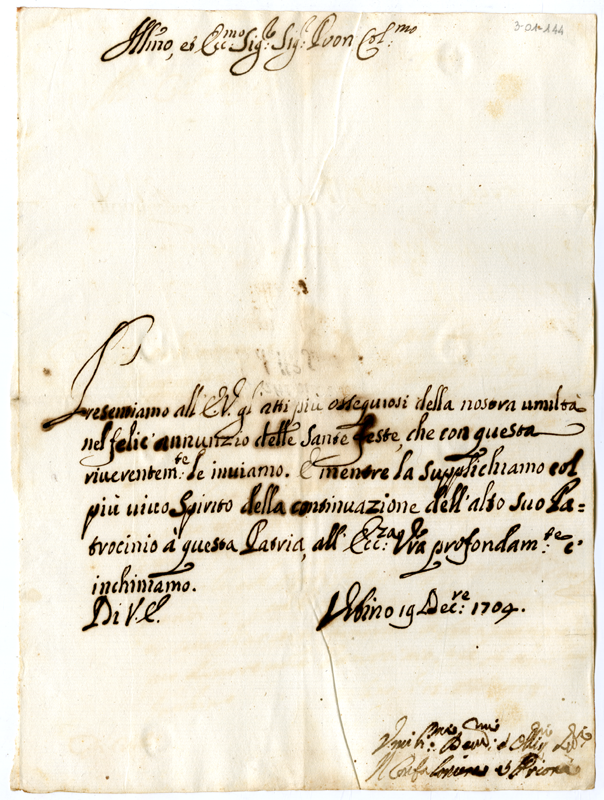 3-01-144
Illmo, et Ecc:mo Sig:r Sig:r Pron Col:mo
Presentiamo all'E.V. gl'atti più ossequiosi della nostra umiltà
nel felic'annunzio delle Sante Feste, che con questa
riverentem:te le inviamo. E mentre la supplichiamo col
più vivo Spirito della continuazione dell'alto suo Pa=
trocinio à questa Patria, all'Ecc:za Vra profondam:te c'
inchiniamo.
Di V.E. Urbino 19 Dec:re 1704.
Umil:mi Dev:mi
Il Confaloniere et Priori